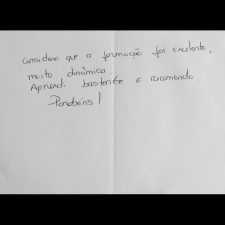 Considero que a formação foi excelente,
muito dinâmica.
Aprendi bastante e recomendo.
Parabéns!